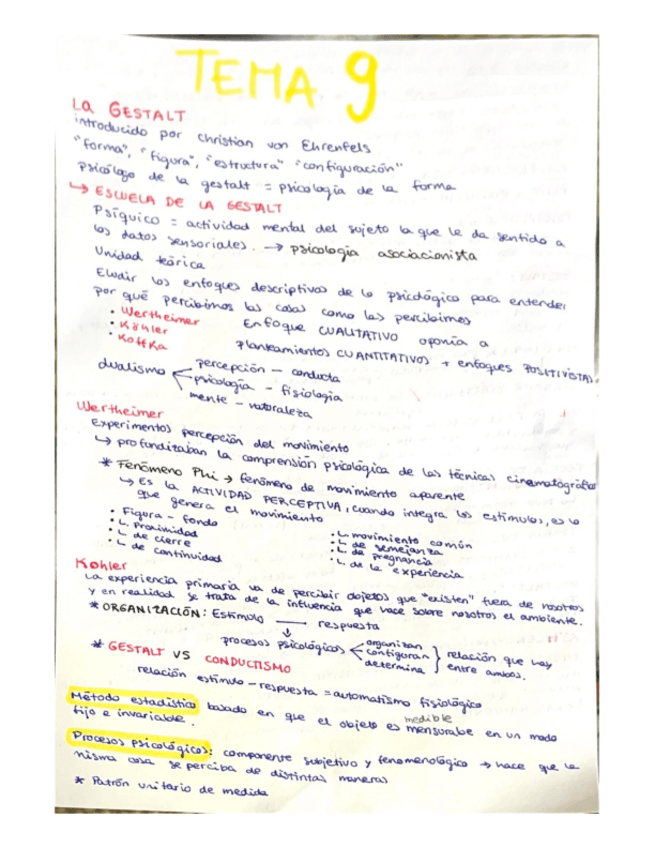 TEMA 9
La GESTALT
introducido por Christian von Ehrenfels
"forma", "figura", "estructura" "configuración"
psicólogo de la gestalt = psicología de la forma
↳ ESCUELA DE LA GESTALT
Psíquico = actividad mental del sujeto la que le da sentido a
los datos sensoriales. → psicología asociacionista
Unidad teórica
Eludir los enfoques descriptivos de lo psicológico para entender
por qué percibimos las cosas como las percibimos
· Wertheimer
· Köhler
· Koffka
Enfoque CUALITATIVO oponía a
planteamientos CUANTITATIVOS + enfoques POSITIVISTAS
dualismo
percepción - conducta
psicología - fisiología
mente - naturaleza
Wertheimer
Experimentos percepción del movimiento
↳ profundizaban la comprensión psicológica de las técnicas cinematográficas
* Fenómeno Phi → fenómeno de movimiento aparente
↳ Es la ACTIVIDAD PERCEPTIVA, cuando integra los estímulos, es lo
que genera el movimiento
· Figura - fondo
· L. Proximidad
· L de cierre
· L de continuidad
· L. movimiento común
· L. de semejanza
· L. de pregnancia
· L. de la experiencia
Kohler
La experiencia primaria va de percibir objetos que "existen" fuera de nosotros
y en realidad se trata de la influencia que hace sobre nosotros el ambiente.
* ORGANIZACIÓN: Estímulo —— respuesta
↓
procesos psicológicos
organizan
configuran
determina
relación que hay
entre ambos.
* GESTALT VS CONDUCTISMO
relación estímulo - respuesta = automatismo fisiológico
Método estadístico basado en que el objeto es mensurable en un modo
medible
fijo e invariable.
Procesos psicológicos: componente subjetivo y fenomenológico → hace que la
misma cosa se perciba de distintas maneras
* Patrón unitario de medida